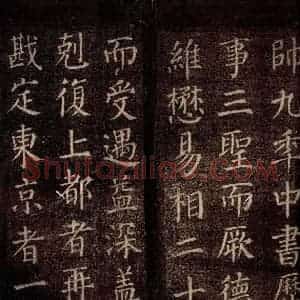 帥九秊中書歷
事三聖而厥德
維懋易相二十
而受遇益深蓋
剋復上都者再
戡定東京者一
Shufaziliao.com